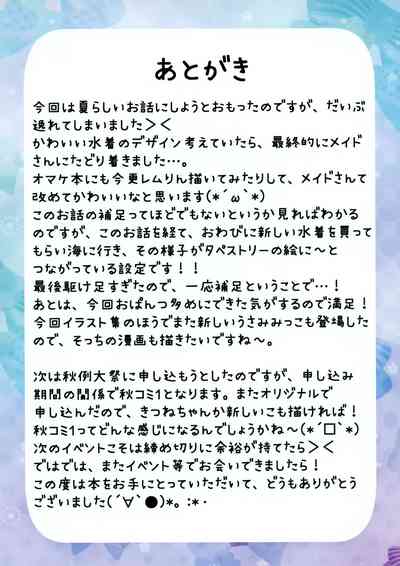 あとがき
今回は夏らしいお話にしようとおもったのですが、だいぶ
逸れてしまいました＞＜
かわいい水着のデザイン考えていたら、最終的にメイド
さんにたどり着きました…。
オマケ本にも今更レムりん描いてみたりして、メイドさんて
改めてかわいいなと思います(*´ω`*)
このお話の補足ってほどでもないというか見ればわかる
のですが、このお話を経て、おわびに新しい水着を買って
もらい海に行き、その様子がタペストリーの絵に～と
つながっている設定です！！
最後駆け足すぎたので、一応補足ということで…！
あとは、今回おぱんつ多めにできた気がするので満足！
今回イラスト集のほうでまた新しいうさみみっこも登場した
ので、そっちの漫画も描きたいですね～。
次は秋例大祭に申し込もうとしたのですが、申し込み
期間の関係で秋コミ1となります。またオリジナルで
申し込んだので、きつねちゃんか新しいこも描ければ！
秋コミ1ってどんな感じになるんでしょうかね～(*´□`*)
次のイベントこそは締め切りに余裕が持てたら＞＜
ではでは、またイベント等でお会いできましたら！
この度は本をお手にとっていただいて、どうもありがとう
ございました(´∀`●)*。:*・